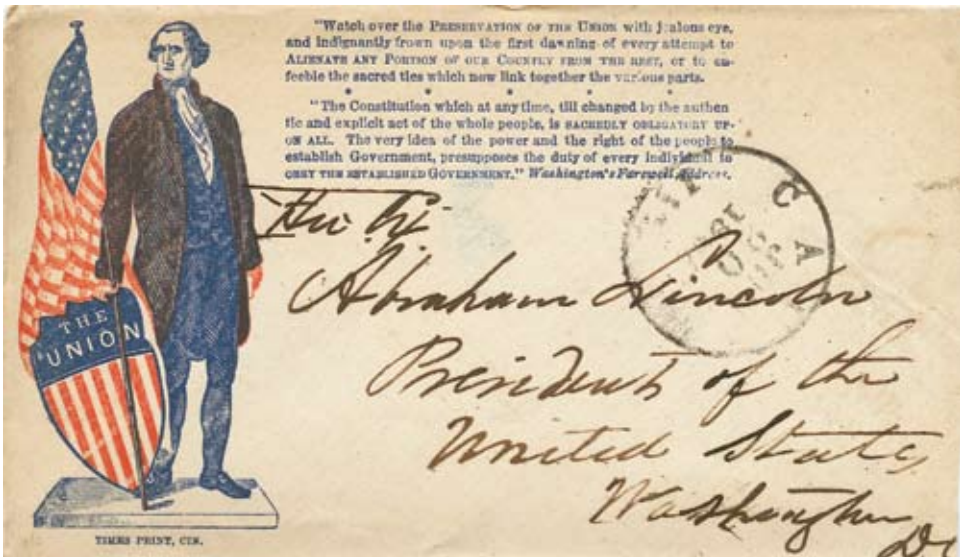 "Watch over the PRESERVATION OF THE UNION with jealous eye,
and indignantly frown upon the first dawning of every attempt to
ALIENATE ANY PORTION OF OUR COUNTRY FROM THE REST, OR to en-
feeble the sacred ties which now link together the various parts.
* * * * *
"The Constitution which at any time, till changed by the authen
tic and explicit act of the whole people, is SACREDLY OBLIGATORY UP-
ON ALL. The very idea of the power and the right of the people to
establish Government, presupposes the duty of every individual to
OBEY THE ESTABLISHED GOVERNMENT." Washington's Farewell Address.
Abraham Lincoln
President of the
United States
Washington
DC
THE
UNION
TIMES PRINT, CIN.